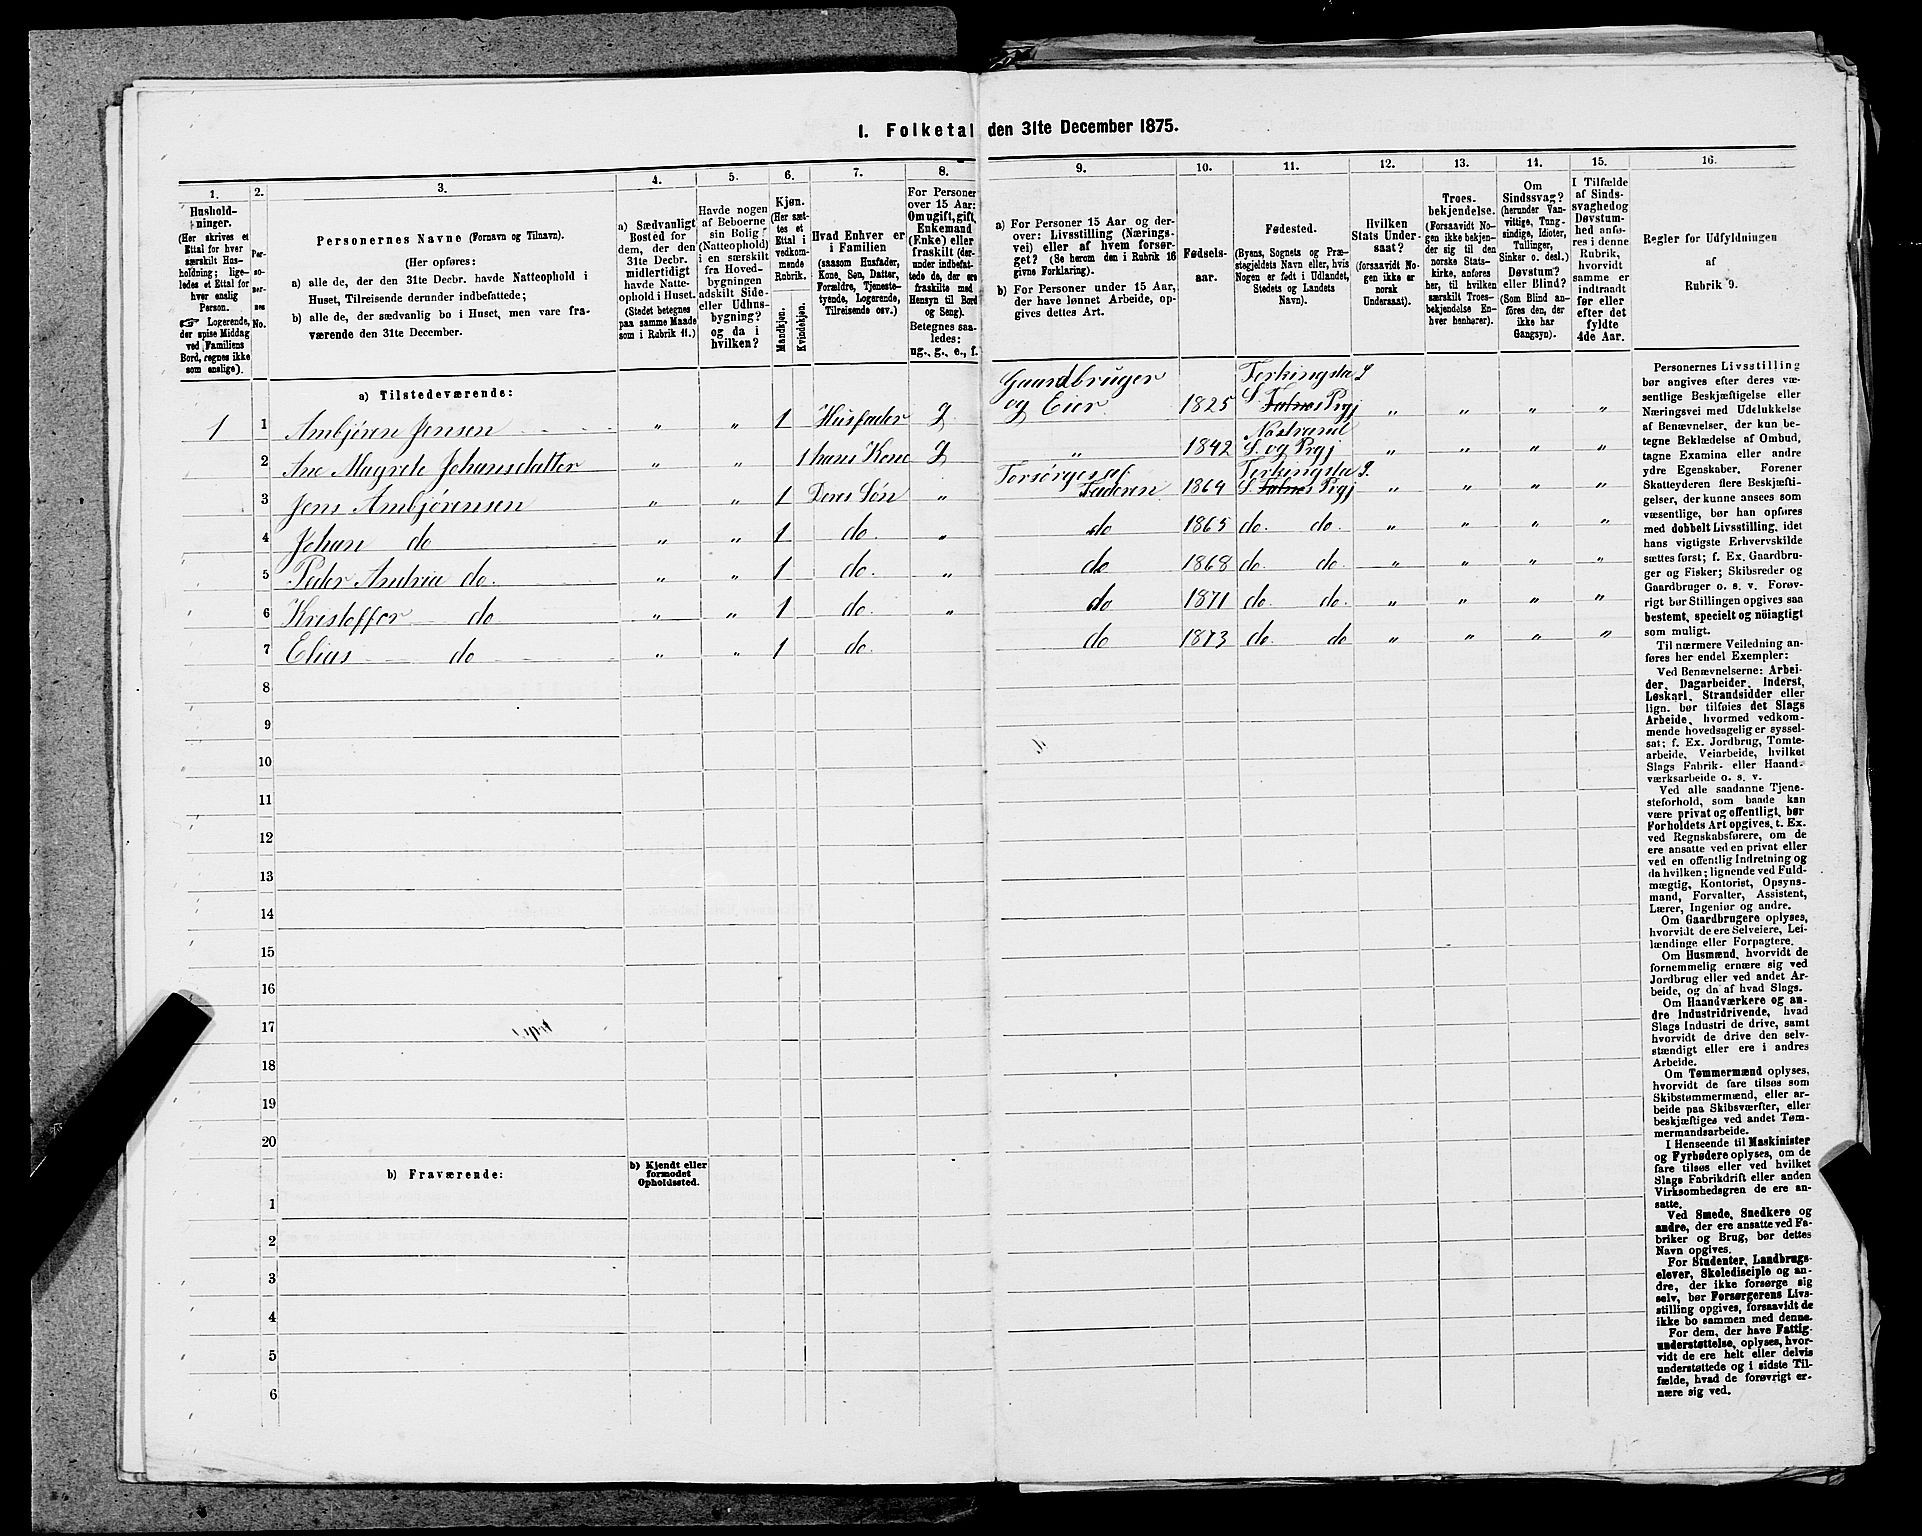 I. Folketal den 31te December 1875.
1.
2.
3.
4.
5.
6.
7.
8.
9.
10.
11.
12.
13.
14.
15.
16.
Hushold-
ninger.
(Her skrives et
Ettal for hver
særskilt Hus-
holdning; lige-
ledes et Ettal for
hver enslig
Person.
☞ Logerende,
der spise Middag
ved Familiens
Bord, regnes ikke
som enslige).
Per-
so-
ner-
nes
No.
Personernes Navne (Fornavn og Tilnavn).
(Her opføres:
a) alle de, der den 31te Decbr. havde Natteophold i
Huset, Tilreisende derunder indbefattede;
b) alle de, der sædvanlig bo i Huset, men vare fra-
værende den 31te December.
a) Sædvanligt
Bosted for
dem, der den
31te Decbr.
midlertidigt
havde Natte-
ophold i Huset.
(Stedet betegnes
paa samme Maade
som i Rubrik 11.)
Havde nogen
af Beboerne
sin Bolig
(Natteophold)
i en særskilt
fra Hoved-
bygningen
adskilt Side-
eller Udhus-
bygning?
og da i
hvilken?
Kjøn.
(Her sæt-
tes et
Ettal i
vedkom-
mende
Rubrik.
Mandkjøn.
Kvindekjøn.
Hvad Enhver er
i Familien
(saasom Husfader,
Kone, Søn, Datter,
Forældre, Tjeneste-
tyende, Logerende,
Tilreisende osv.)
For Personer
over 15 Aar:
Om ugift, gift,
Enkemand
(Enke) eller
fraskilt (der-
under indbefat-
tede de, der ere
fraskilte med
Hensyn til Bord
og Seng).
Betegnes saa-
ledes:
ug., g., e., f.
a) For Personer 15 Aar og der-
over: Livsstilling (Nærings-
vei) eller af hvem forsør-
get? (Se herom den i Rubrik 16
givne Forklaring).
b) For Personer under 15 Aar,
der have lønnet Arbeide, op-
gives dettes Art.
Fødsels-
aar.
Fødested.
(Byens, Sognets og Præ-
stegjeldets Navn eller, hvis
Nogen er født i Udlandet,
Stedets og Landets
Navn).
Hvilken
Stats Under-
saat?
(forsaavidt No-
gen ikke er
norsk
Undersaat).
Troes-
bekjendelse.
(Forsaavidt No-
gen ikke bekjen-
der sig til den
norske Stats-
kirke, anføres
her, til hvilken
særskilt Troes-
bekjendelse En-
hver henhører).
Om
Sindssvag?
(herunder Van-
vittige, Tung-
sindige, Idioter,
Tullinger,
Sinker o. desl.)
Døvstum?
eller Blind?
(Som Blind an-
føres den, der
ikke har
Gangsyn).
I Tilfælde
af Sinds-
svaghed og
Døvstum-
hed anfø-
res i denne
Rubrik,
hvorvidt
samme er
indtraadt
før eller
efter det
fyldte
4de Aar.
Regler for Udfyldningen
af
Rubrik 9.
a) Tilstedeværende:
1 1 Ambjøren Jensen " " 1 Husfader G Gaardbruger og Eier 1825 Torkingstad S. S. Falnes Prgj " " " "
2 Ane Magrete Johansdatter " " 1 hans Kone G " 1842 Nastrand S. og Prgj " " " "
3 Jens Ambjørensen " " 1 Deres Søn " Forsørges af Faderen 1864 Torkingstad S. S. Falnes Prgj " " " "
4 Johan do " " 1 do. " do 1865 do. do. " " " "
5 Peder Andrea do. " " 1 do. " do 1868 do. do. " " " "
6 Kristoffer do " " 1 do. " do 1871 do. do. " " " "
7 Elias do " " 1 do. do 1873 do. do " " " "
8
9
10
11
12
13
14
15
16
17
18
19
20
b) Fraværende:
b) Kjendt eller
formodet
Opholdssted.
1
2
3
4
5
6
Personernes Livsstilling
bør angives efter deres væ-
sentlige Beskjæftigelse eller
Næringsvei med Udelukkelse
af Benævnelser, der kun be-
tegne Beklædelse af Ombud,
tagne Examina eller andre
ydre Egenskaber. Forener
Skatteyderen flere Beskjæfti-
gelser, der kunne ansees som
væsentlige, bør han opføres
med dobbelt Livsstilling, idet
hans vigtigste Erhvervskilde
sættes først; f. Ex. Gaardbru-
ger og Fisker; Skibsreder og
Gaardbruger o. s. v. Forøv-
rigt bør Stillingen opgives saa
bestemt, specielt og nöiagtigt
som muligt.
Til nærmere Veiledning an-
føres her endel Exempler:
Ved Benævnelserne: Arbei-
der, Dagarbeider, Inderst,
Løskarl, Strandsidder eller
lign. bør tilføies det Slags
Arbeide, hvormed vedkom-
mende hovedsagelig er syssel-
sat; f. Ex. Jordbrug, Tomte-
arbeide, Veiarbeide, hvilket
Slags Fabrik- eller Haand-
værksarbeide o. s. v.
Ved alle saadanne Tjene-
steforhold, som baade kan
være privat og offentligt, bør
Forholdets Art opgives, t. Ex.
ved Regnskabsførere, om de
ere ansatte ved en privat eller
ved en offentlig Indretning og
da hvilken; lignende ved Fuld-
mægtig, Kontorist, Opsyns-
mand, Forvalter, Assistent,
Lærer, Ingeniør og andre.
Om Gaardbrugere oplyses,
hvorvidt de ere Selveiere, Lei-
lændinge eller Forpagtere.
Om Husmænd, hvorvidt de
fornemmelig ernære sig ved
Jordbrug eller ved andet Ar-
beide, og da af hvad Slags.
Om Haandværkere og an-
dre Industridrivende, hvad
Slags Industri de drive, samt
hvorvidt de drive den selv-
stændigt eller ere i andres
Arbeide.
Om Tømmermænd oplyses,
hvorvidt de fare tilsøs som
Skibstømmermænd, eller ar-
beide paa Skibsværfter, eller
beskjæftiges ved andet Tøm-
mermandsarbeide.
I Henseende til Maskinister
og Fyrbødere oplyses, om de
fare tilsøs eller ved hvilket
Slags Fabrikdrift eller anden
Virksomhedsgren de ere an-
satte.
Ved Smede, Snedkere og
andre, der ere ansatte ved Fa-
briker og Brug, bør dettes
Navn opgives.
For Studenter, Landbrugs-
elever, Skoledisciple og an-
dre, der ikke forsørge sig
selv, bør Forsørgerens Livs-
stilling opgives, forsaavidt de
ikke bo sammen med denne.
For dem, der have Fattig-
understøttelse, oplyses, hvor-
vidt de ere helt eller delvis
understøttede og i sidste Til-
fælde, hvad de forøvrigt er-
nære sig ved.